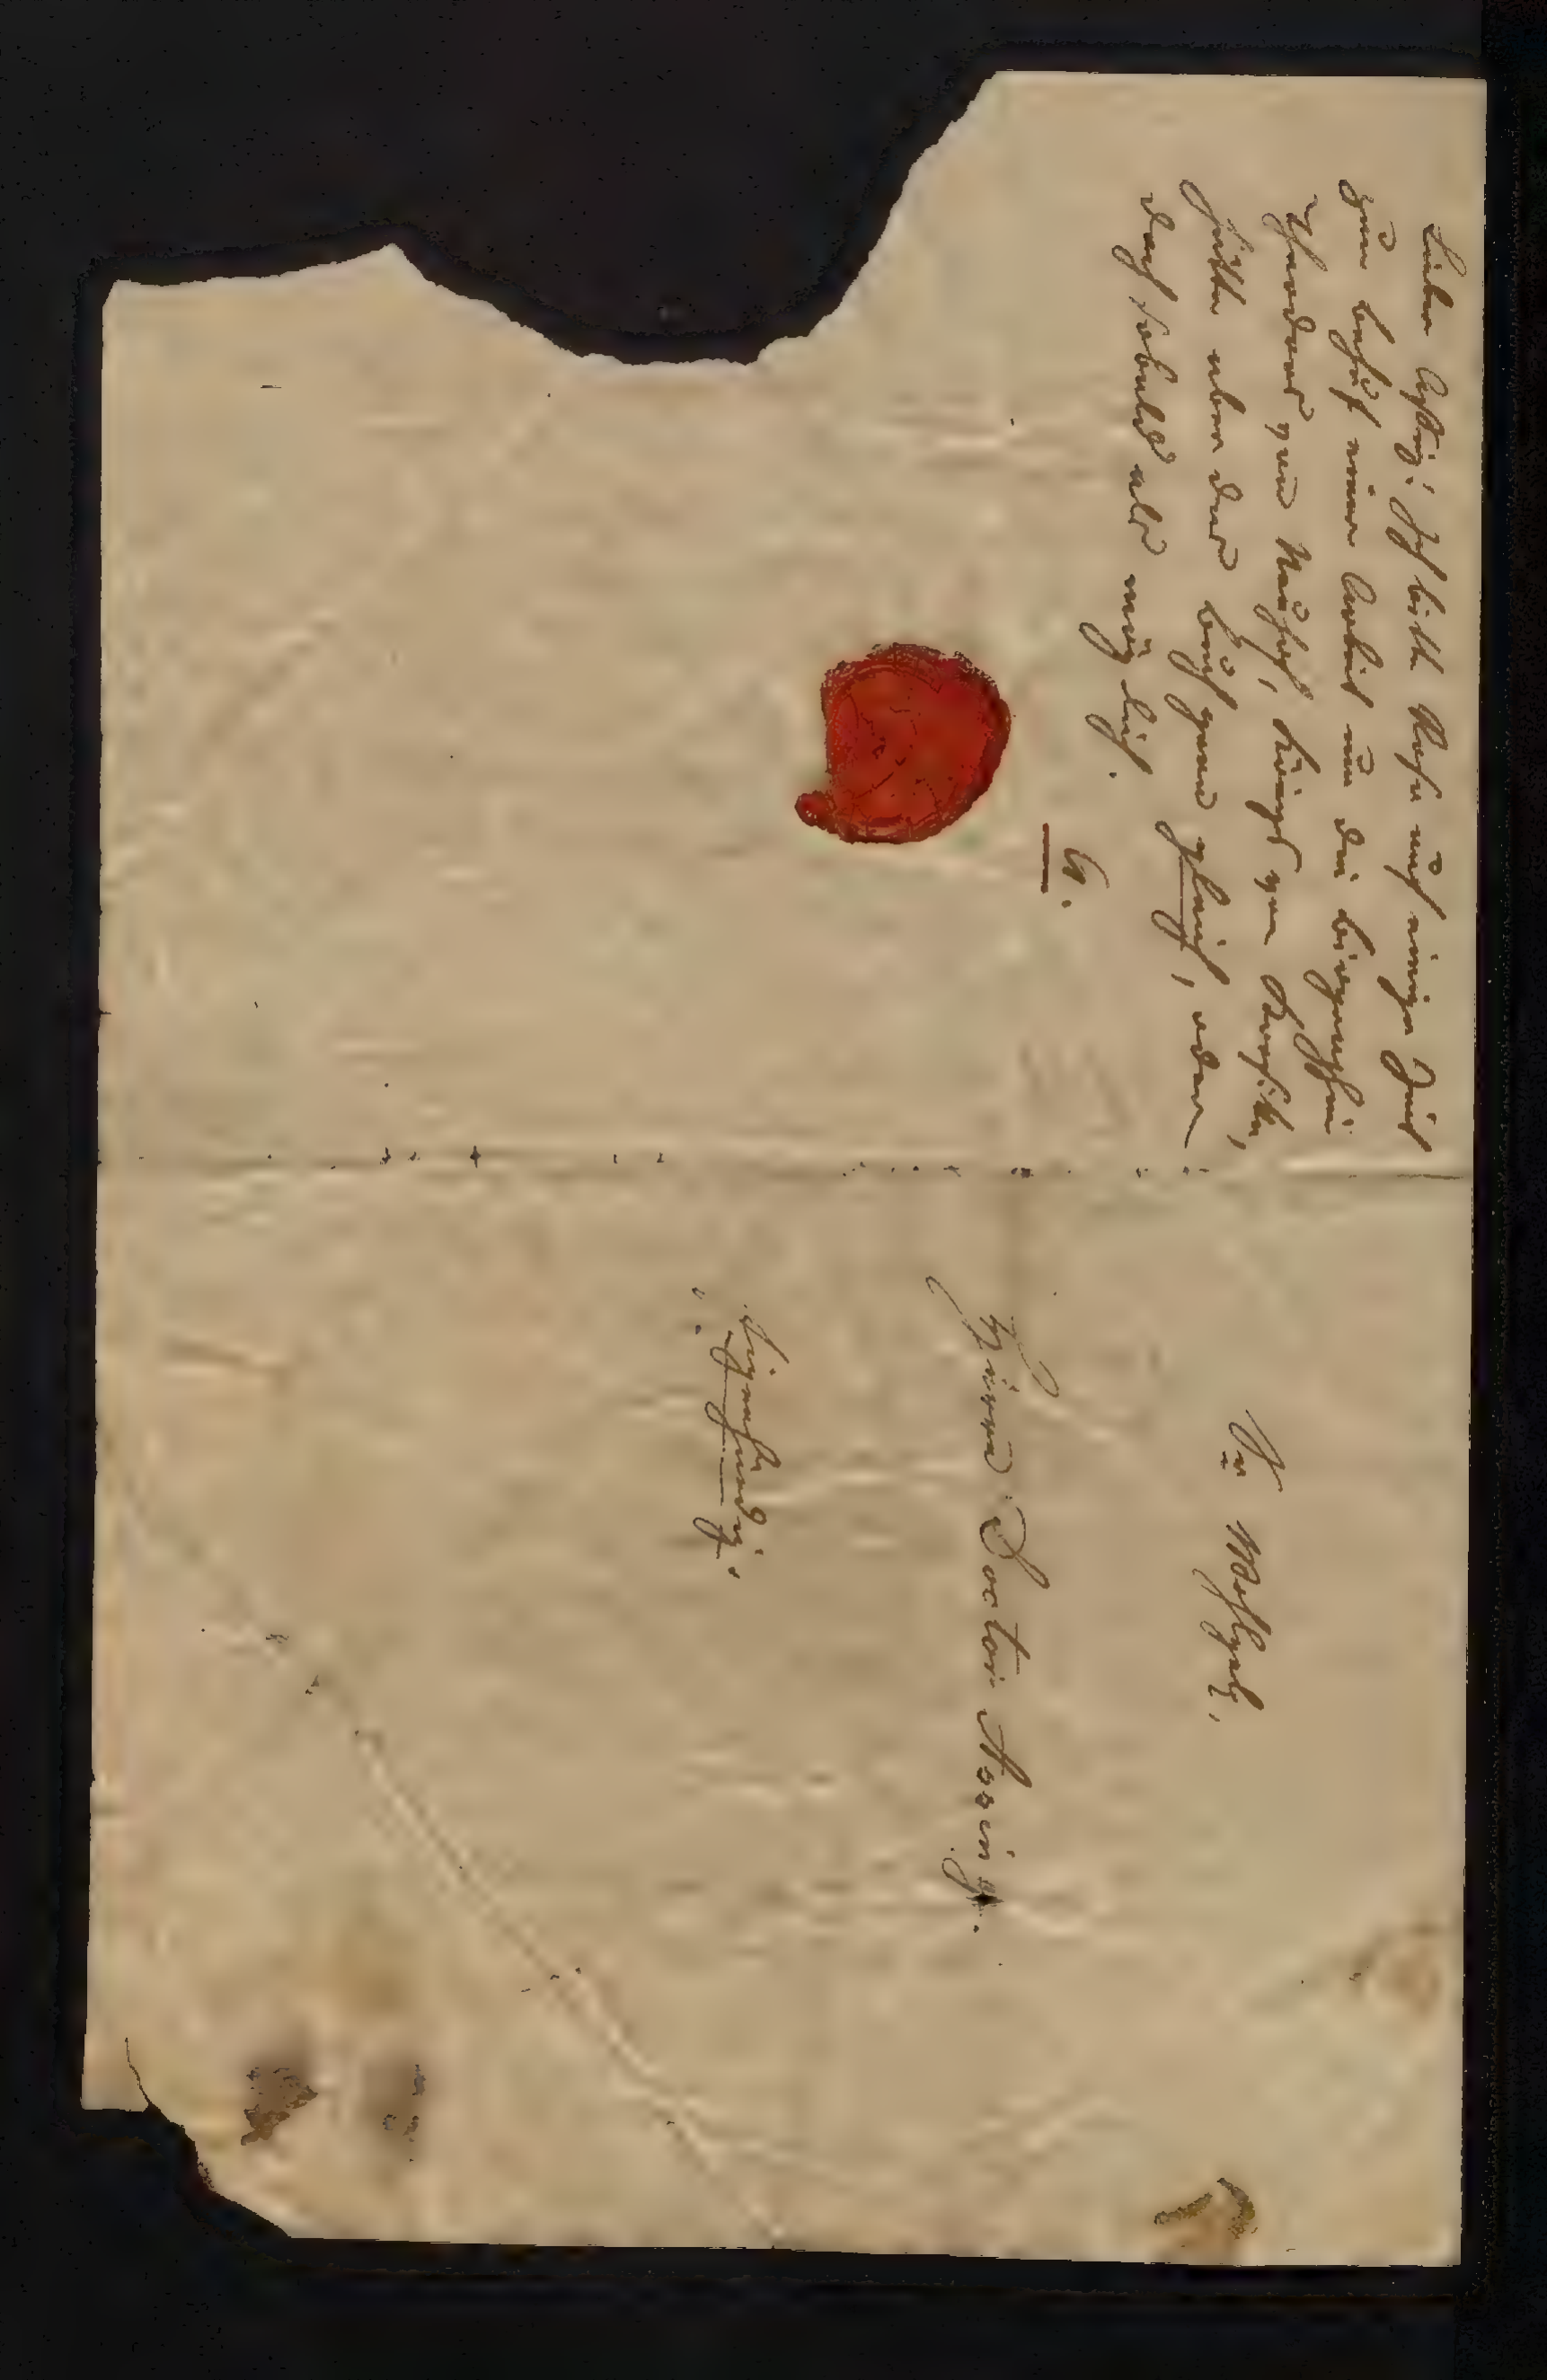 Lieber Assing! Ich bitte Rosa auf einige Zeit
zum behuf einer Arbeit um die
Theodor von
hätte aber das Buch gern gleich, oder
doch sobald als möglich.
Sr Wohlgeb.
Herrn Doctor Assing.
Eigenhändig.